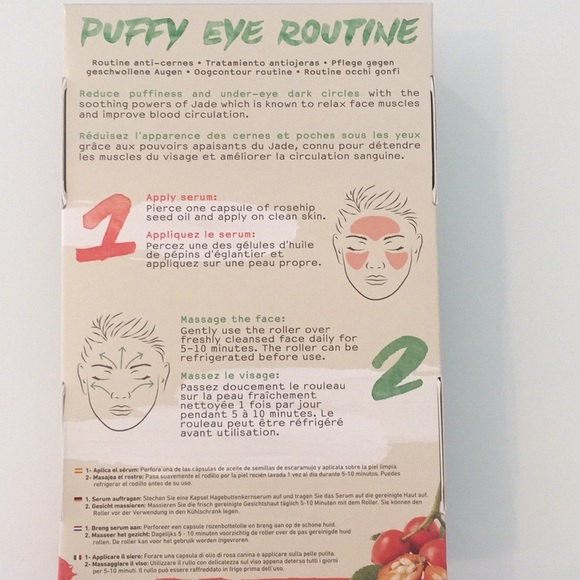 PUFFY EYE ROUTINE
Routine anti-cernes • Tratamiento antiojeras • Pflege gegen
geschwollene Augen • Oogcontour routine • Routine occhi gonfi
Reduce puffiness and under-eye dark circles with the
soothing powers of Jade which is known to relax face muscles
and improve blood circulation.
Réduisez l'apparence des cernes et poches sous les yeux
grâce aux pouvoirs apaisants du Jade, connu pour détendre
les muscles du visage et améliorer la circulation sanguine.
1
Apply serum:
Pierce one capsule of rosehip
seed oil and apply on clean skin.
Appliquez le serum:
Percez une des gélules d'huile
de pépins d'églantier et
appliquez sur une peau propre.
Massage the face:
Gently use the roller over
freshly cleansed face daily for
5-10 minutes. The roller can be
refrigerated before use.
2
Massez le visage:
Passez doucement le rouleau
sur la peau fraîchement
nettoyée 1 fois par jour
pendant 5 à 10 minutes. Le
rouleau peut être réfrigéré
avant utilisation.
1- Aplica el sérum: Perfora una de las cápsulas de aceite de semillas de escaramujo y aplícala sobre la piel limpia
2- Masajea el rostro: Pasa suavemente el rodillo por la piel recién lavada 1 vez al día durante 5-10 minutos. Puedes
refrigerar el rodillo antes de su uso.
1. Serum auftragen: Stechen Sie eine Kapsel Hagebuttenkernserum auf und tragen Sie das Serum auf die gereinigte Haut auf.
2. Gesicht massieren: Massieren Sie die frisch gereinigte Gesichtshaut täglich 5-10 Minuten mit dem Roller. Sie können den
Roller vor der Verwendung in den Kühlschrank legen.
1. Breng serum aan: Perforeer een capsule rozenbottelolie en breng aan op de schone huid.
2. Masseer het gezicht: Dagelijks 5 - 10 minuten voorzichtig de roller over de pas gereinigde huid
rollen. De roller kan voor het gebruik worden ingevroren.
1- Applicare il siero: Forare una capsula di olio di rosa canina e applicare sulla pelle pulita.
2- Massaggiare il viso: Utilizzare il rullo con delicatezza sul viso appena deterso tutti i giorni
per 5-10 minuti. Il rullo può essere raffreddato in frigo prima dell'uso.